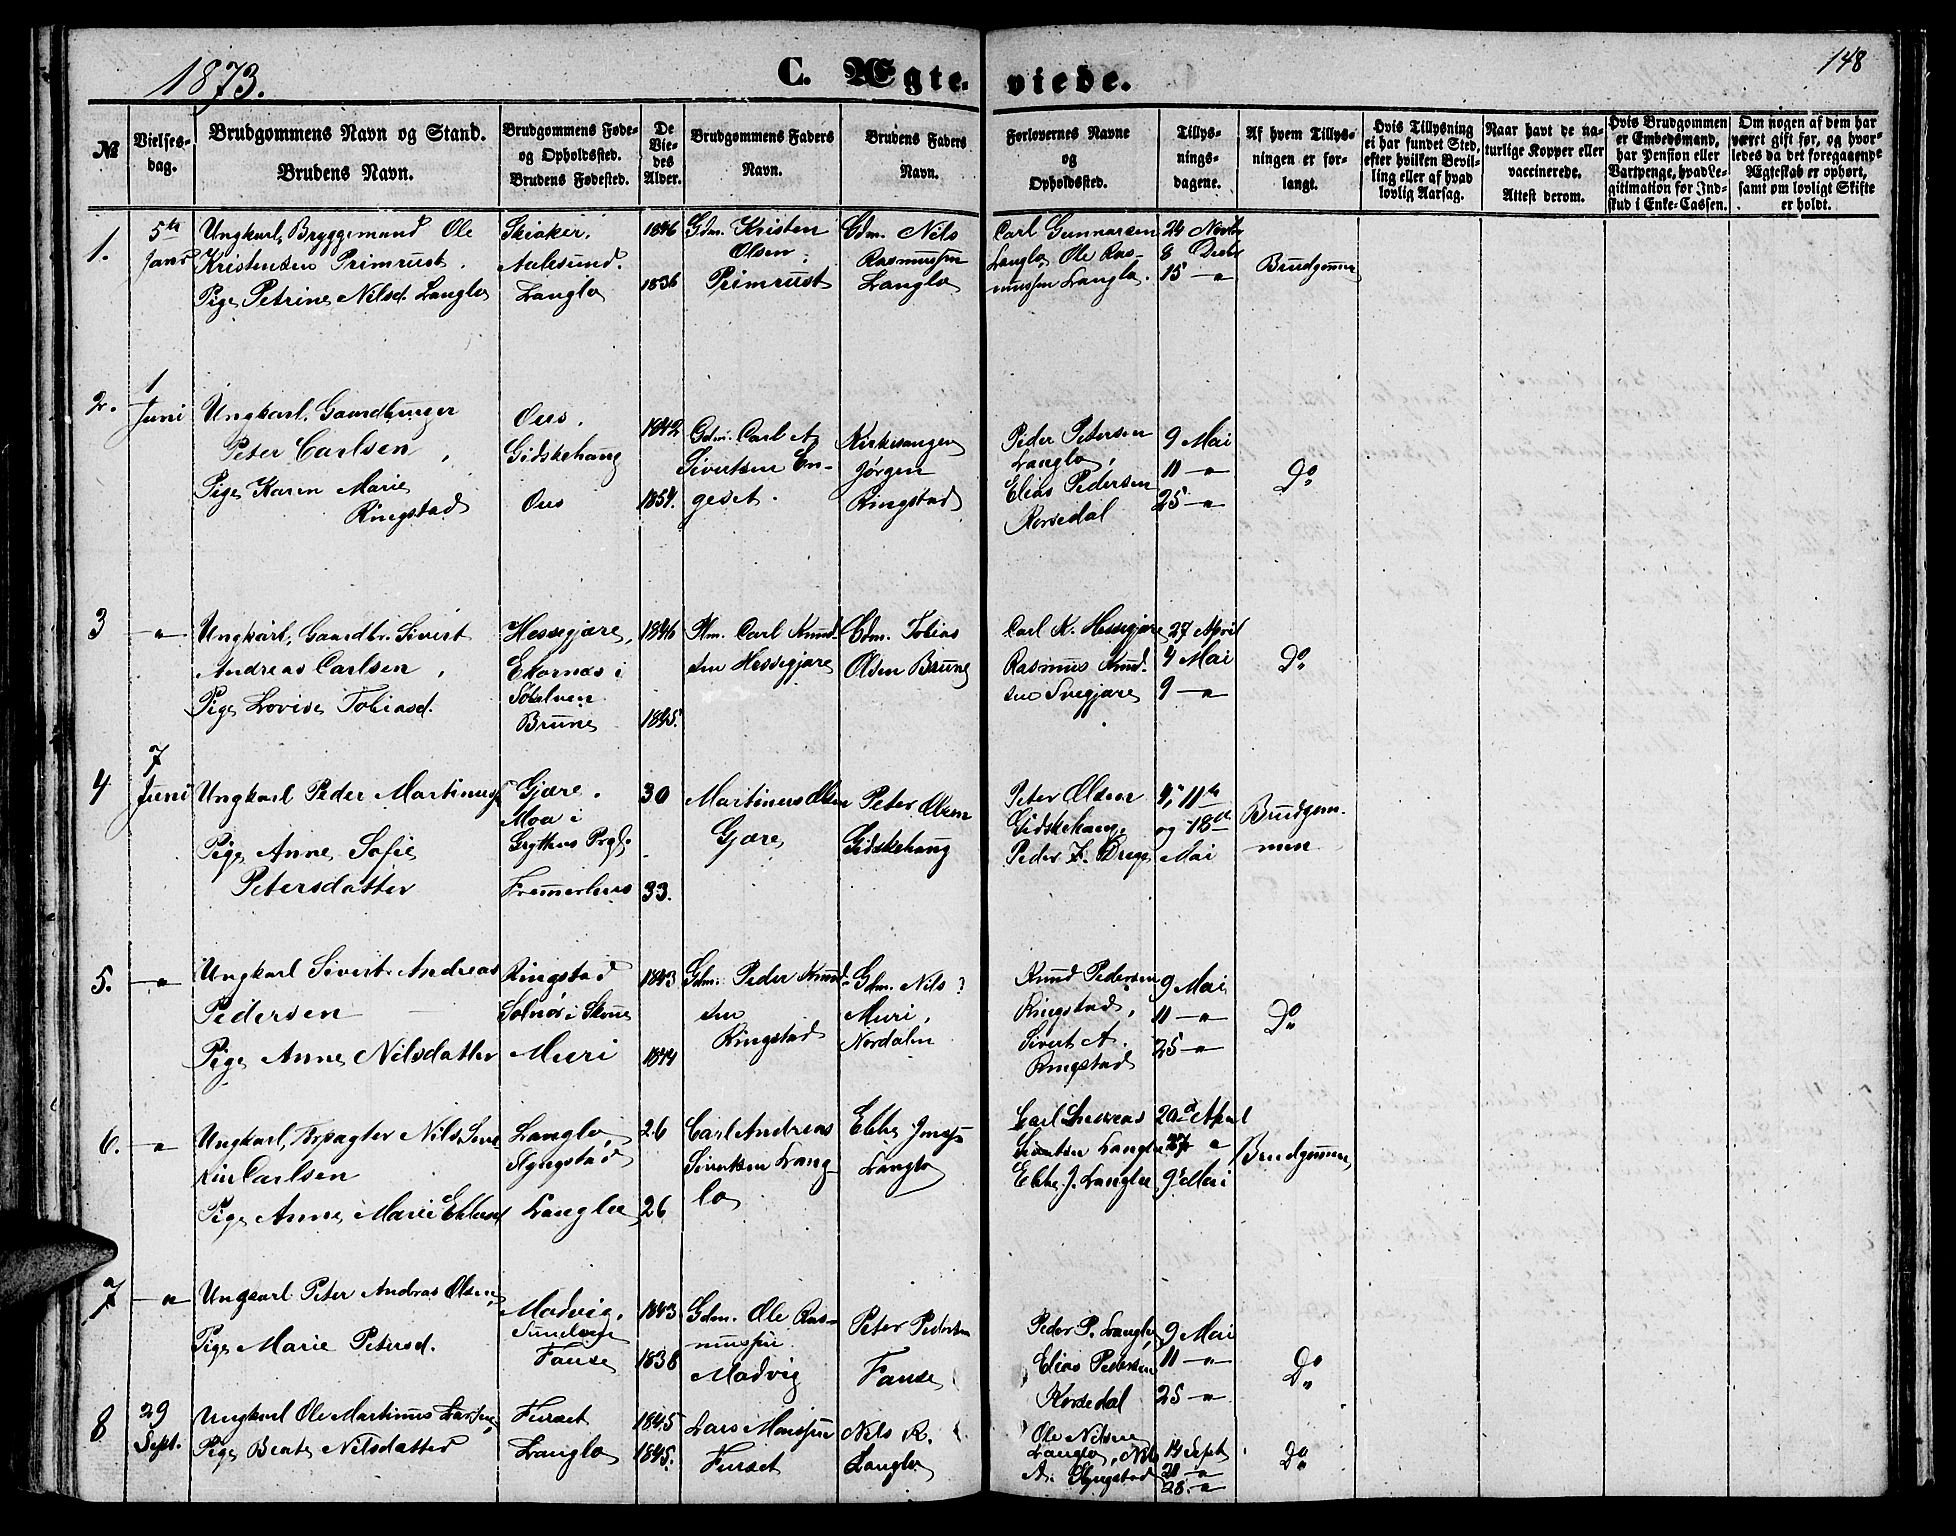 1873.
C. Ægteviede.
148
№
Vielsesdag.
Brudgommens Navn og Stand.
Brudens Navn.
Brudgommens Føde-
og Opholdssted.
Brudens Fødested.
De
Vie-
des
Alder.
Brudgommens Faders
Navn.
Brudens Faders
Navn.
Forlovernes Navne
og
Opholdssted.
Tillys-
nings-
dagene.
Af hvem Tillys-
ningen er for-
langt.
Hvis Tillysning
ei har fundet Sted,
efter hvilken Bevil-
ling eller af hvad
lovlig Aarsag.
Naar havt de na-
turlige Kopper eller
vaccinerede.
Attest derom.
Hvis Brudgommen
er Embedsmand,
har Pension eller
Vartpenge, hvad Le-
gitimation for Ind-
skud i Enke-Cassen.
Om nogen af dem har
været gift før, og hvor-
ledes da det foregaaende
Ægteskab er ophørt,
samt om lovligt Skifte
er holdt.
1.
5te
Janr
Ungkarl, Bryggemand Ole
Kristensen Primrust.
Pige Petrine Nilsd. Langlo
Skiaker,
Aalesund.
Langlo
1846
1836
Gdm. Kristen
Olsen,
Primrust
Gdm. Nils
Rasmussen
Langlo
Carl Gunnarsen
Langlo, Ole Ras-
mussen Langlo.
24 Novbr
8 Decbr
15 -"-
Brudgommen
2.
1
Juni
Ungkarl, Gaardbruger
Peter Carlsen,
Pige Karen Marie
Ringstad
Ous,
Gidskehaug
Ous
1842
1854.
Gdm. Carl A.
Sivertsen En-
geset.
Kirkesanger
Jørgen
Ringstad
Peder Petersen
Langlo,
Elias Pedersen
Korsedal
9 Mai
11 -"-
25 -"-
Do
3
-"-
Ungkarl, Gaardbr. Sivert
Andreas Carlsen,
Pige Lovise Tobiasd.
Hessegjære,
Ekornæs i
Brune
1846
1845.
Carl Knud-
sen Hessegjære
Gdm. Tobias
Olsen Brune
Carl K. Hessegjære
Rasmus Knud-
sen Svegjære
27 April
4 Mai
9 -"-
Do
4
7
Juni
Ungkarl Peder Martinuss.
Pige Anne Sofie
Petersdatter
Gjære.
Moa i
Gryttens Prgl.
Fremerhus
30
33.
Martinus Olsen
Gjære
Peter Olsen
Gidskehaug
Peter Olsen
Gidskehaug.
Peder Z. Drege
4, 11te
og 18de
Mai
Brudgom-
men
5.
-"-
Ungkarl Sivert Andreas
Pedersen
Pige Anne Nilsdatter
Ringstad
Solnør i Skoue
Muri
1843
1844
Gdm. Peder Knud-
sen
Ringstad
Gdm. Nils ?
Muri,
Nordalen
Knud Pedersen
Ringstad,
Sivert A.
Ringstad
9 Mai
11 -"-
25 -"-
Do
6.
-"-
Ungkarl, Forpagter Nils Seve-
rin Carlsen
Pige Anne Marie Ebbesd
Langlo,
Slyngstad
Langlo
26
26
Carl Andreas
Sivertsen Lang-
lo
Ebbe Jonsen
Langlo
Carl Andreas
Sivertsen Langlo
Ebbe J. Langlo
20de April
27 "
9de Mai
Brudgommen
7
-"-
Ungkarl Peter Andreas Olsen,
Pige Marie Petersd.
Madvig,
Fause
1843.
1838
Gdm. Ole Ras-
mussen
Madvig
Peter Pedersen
Fause
Peder P. Langlo
Elias Pedersen
Korsedal
9 Mai
11 -"-
25 -"-
Do
8
29
Sept.
Ungkarl Ole Martinus Larsen,
Pige Beate Nilsdatter
Furset
Langlo
1845
1845.
Lars Monssen
Furset
Nils R.
Langlo
Ole Nilsen
Langlo, Nils
A. Slyngstad
14 Sept
21 -"-
28. -"-
Do